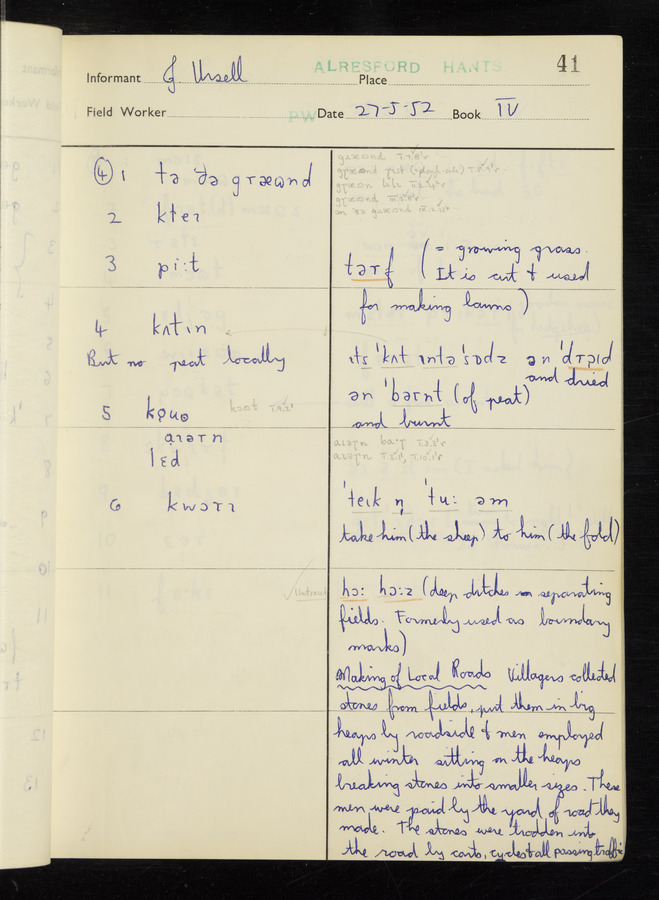 ALRESFORD HANTS. 41
Informant J. Ursell Place
Field Worker PW Date 27-5-52 Book IV
④ 1 tə ðə græɷnd
2 kleɪ
3 piːt
4 kʌtɪn
But no peat locally
5
aɪəɾn
lɛd
6 kwɔɾɪ
təɾf ( = growing grass.
It is cut & used
for making lawns)
ɪts 'kʌt ɪntə 'sɒdz ən 'dɾəɪd
and dried
ən 'bəɾnt (of peat)
and burnt
'teɪk n̩ 'tuː əm
take him (the sheep) to him (the fold)
hɔː hɔːz (deep ditches separating
fields. Formerly used as boundary
marks)
Making of Local Roads Villagers collected
stones from fields, put them in big
heaps by roadside & men employed
all winter sitting on the heaps
breaking stones into smaller sizes. These
men were paid by the yard of road they
made. The stones were trodden into
the road by carts, cycles & all passing traffic